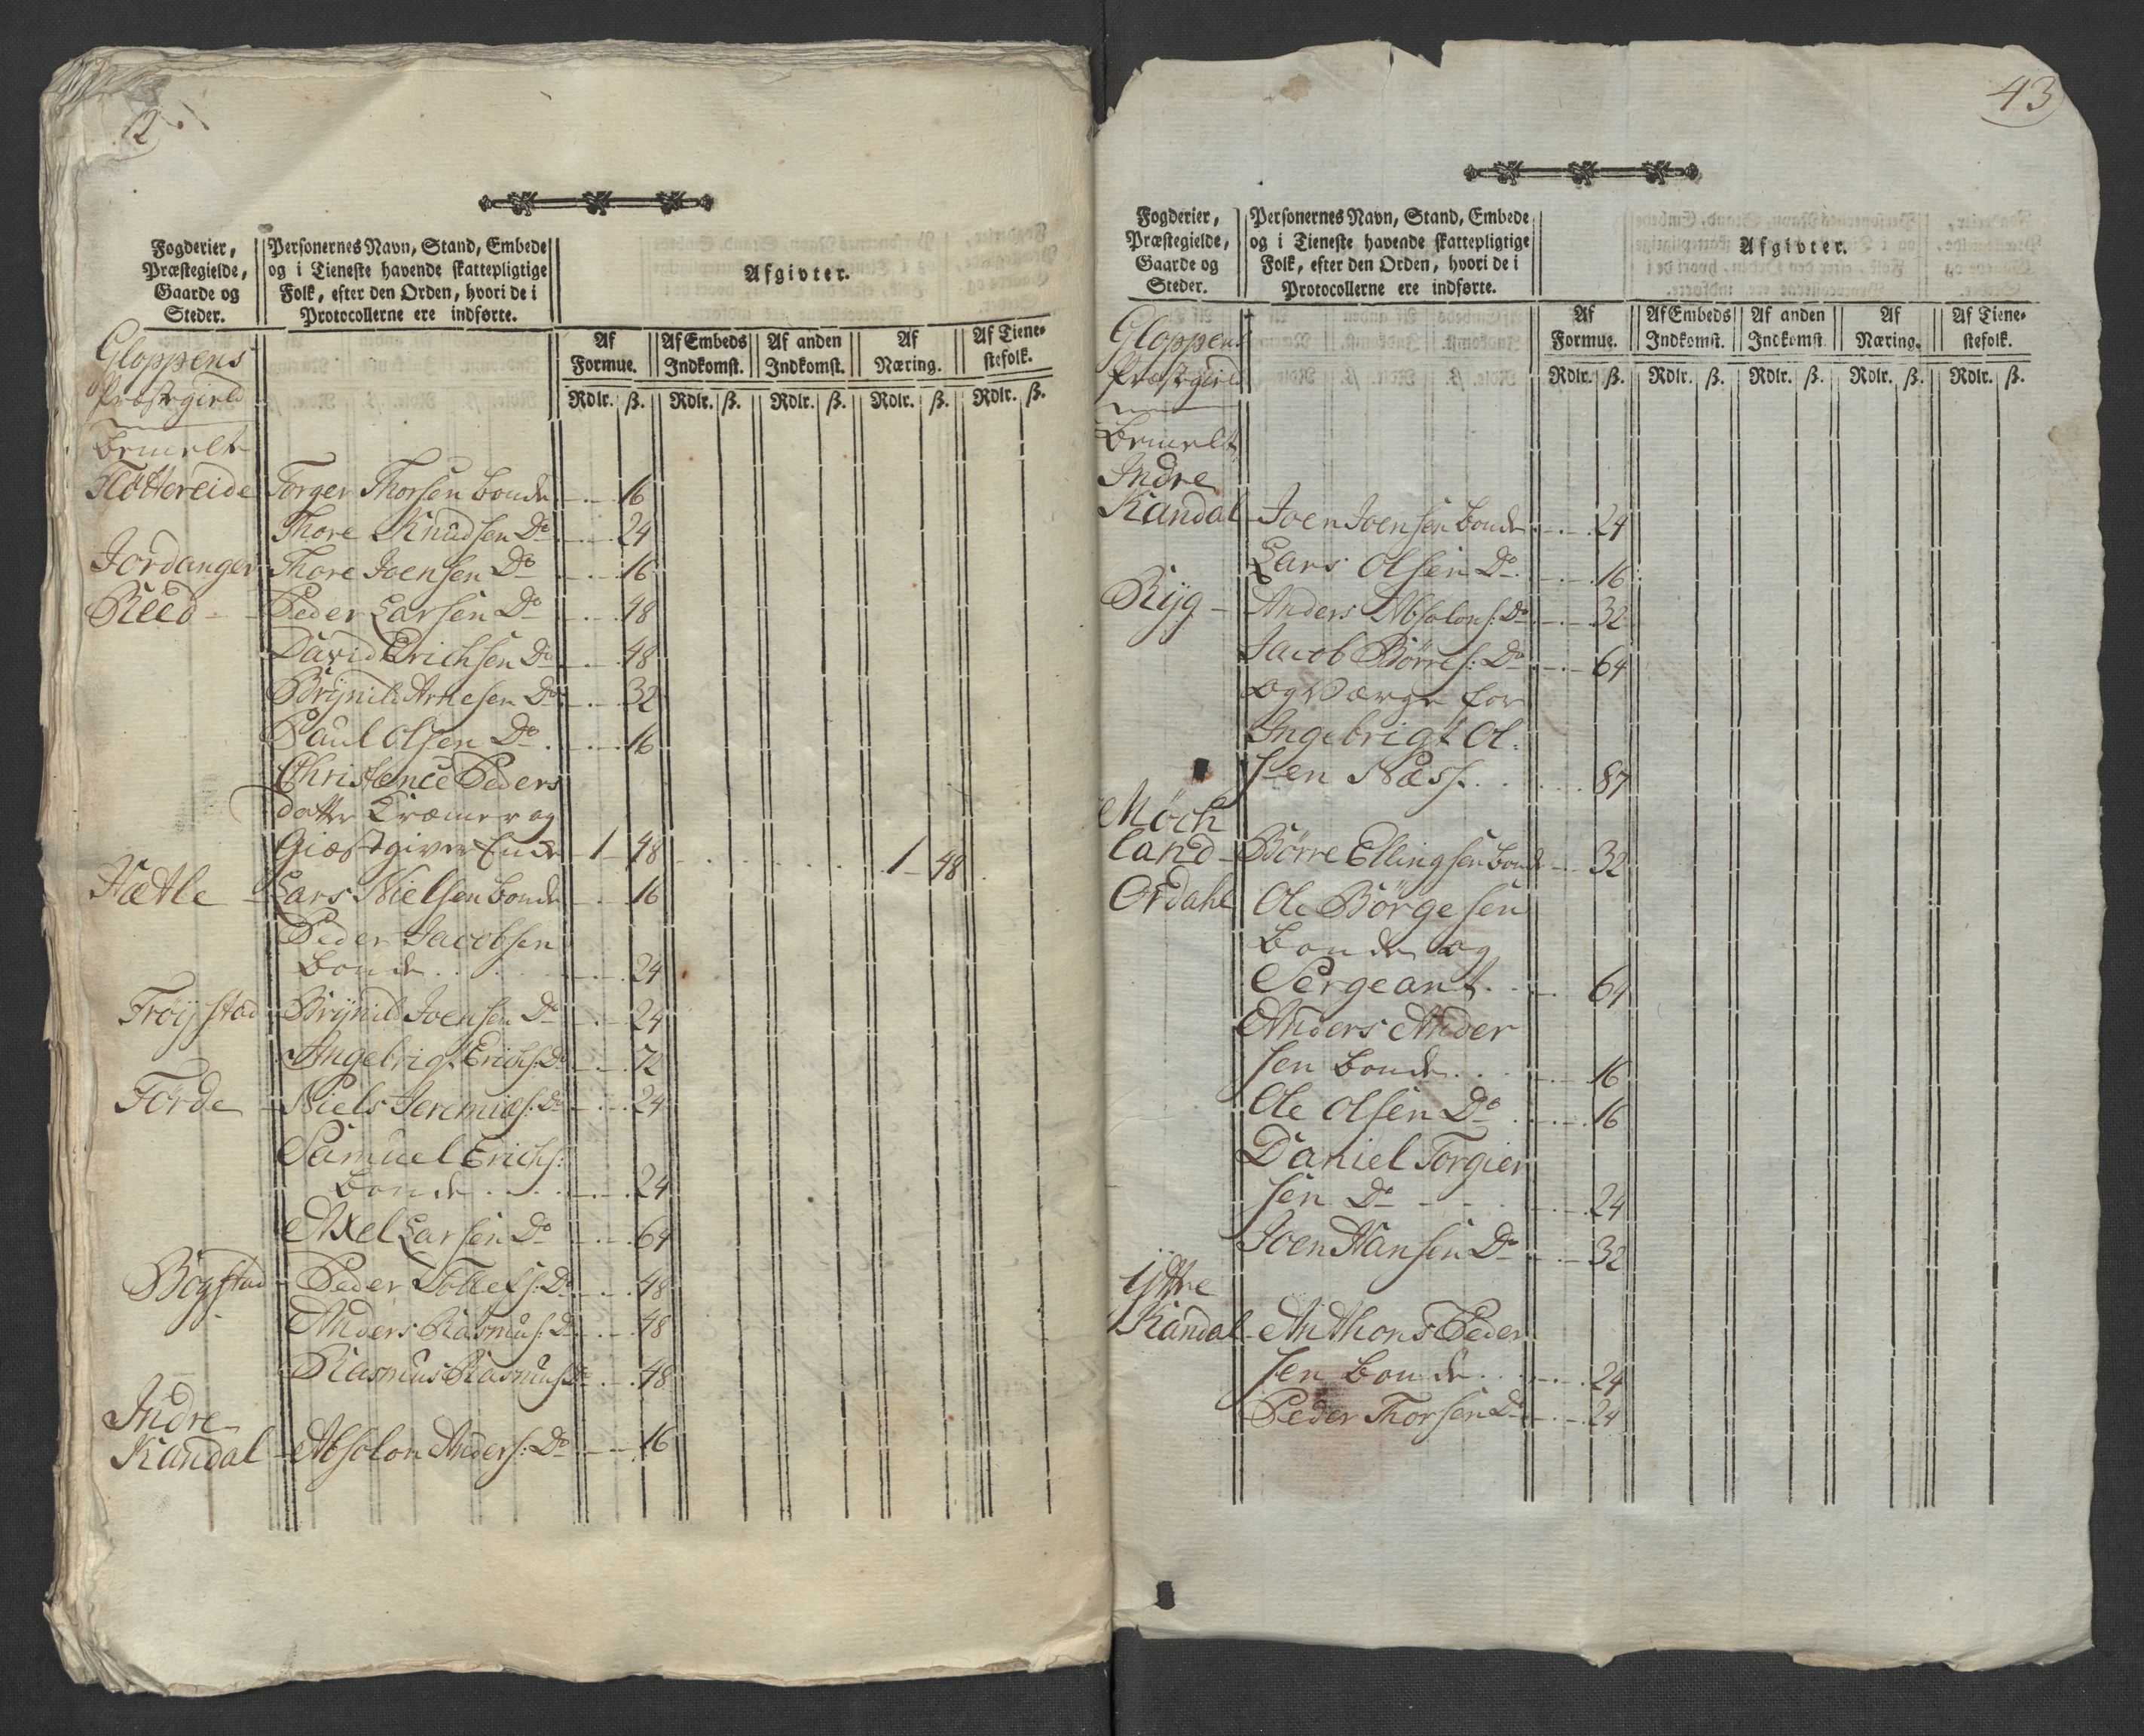 Fogderier,
Præstegielde,
Gaarde og
Steder.
Personernes Navn, Stand, Embede
og i Tieneste havende skattepligtige
Folk, efter den Orden, hvori de i
Protocollerne ere indførte.
Afgivter.
Af Formue. Af Embeds Indkomst. Af anden Indkomst. Af Næring. Af Tiene-stefolk.
Rdlr. ß. Rdlr. ß. Rdlr. ß. Rdlr. ß. Rdlr. ß.
Gloppens
Præstgield
bemelte
Fløttereide Torger Thorsen bonde 16
Thore Knudsen Do 24
Jordanger Thore Joensen Do 16
Reed Peder Larsen Do 48
David Erichsen Do 48
Brynild Arnesen Do 32
Paul Olsen Do 16
Christence Peders
datter Cræmer og
Giæstgiver Enke 1 48 1 48
Hætle Lars Nielsen bonde 16
Peder Jacobsen
bonde 24
Trøystad Brynild Joensen Do 24
Ingebrigt Erichs: Do 72
Førde Niels Jeremias: Do 24
Samuel Erichs:
bonde 24
Axel Larsen Do 64
Bogstad Peder Tolles: Do 48
Anders Rasmus: Do 48
Rasmus Rasmus: Do 48
Indre
Kandal Absolon Anders: Do 16
43
Fogderier,
Præstegielde,
Gaarde og
Steder.
Personernes Navn, Stand, Embede
og i Tieneste havende skattepligtige
Folk, efter den Orden, hvori de i
Protocollerne ere indførte.
Afgivter.
Af Formue. Af Embeds Indkomst. Af anden Indkomst. Af Næring. Af Tiene-stefolk.
Rdlr. ß. Rdlr. ß. Rdlr. ß. Rdlr. ß. Rdlr. ß.
Gloppens
Præstgield
bemelte
Indre
Kandal Joen Joensen bonde 24
Lars Olsen Do 16
Ryg Anders Absolons: Do 32
Jacob Børres: Do 64
og Værge for
Ingebrigt Ol:
sen Næss 87
Møch
land Børre Ellingsen bonde 32
Ordahl Ole Børgesen
bonde og
Sergeant 64
Anders Ander
sen bonde 16
Ole Olsen Do 16
Daniel Torgier
sen Do 24
Joen Hansen Do 32
ÿttre
Kandal Anthons Peder
sen bonde 24
Peder Thorsen Do 24